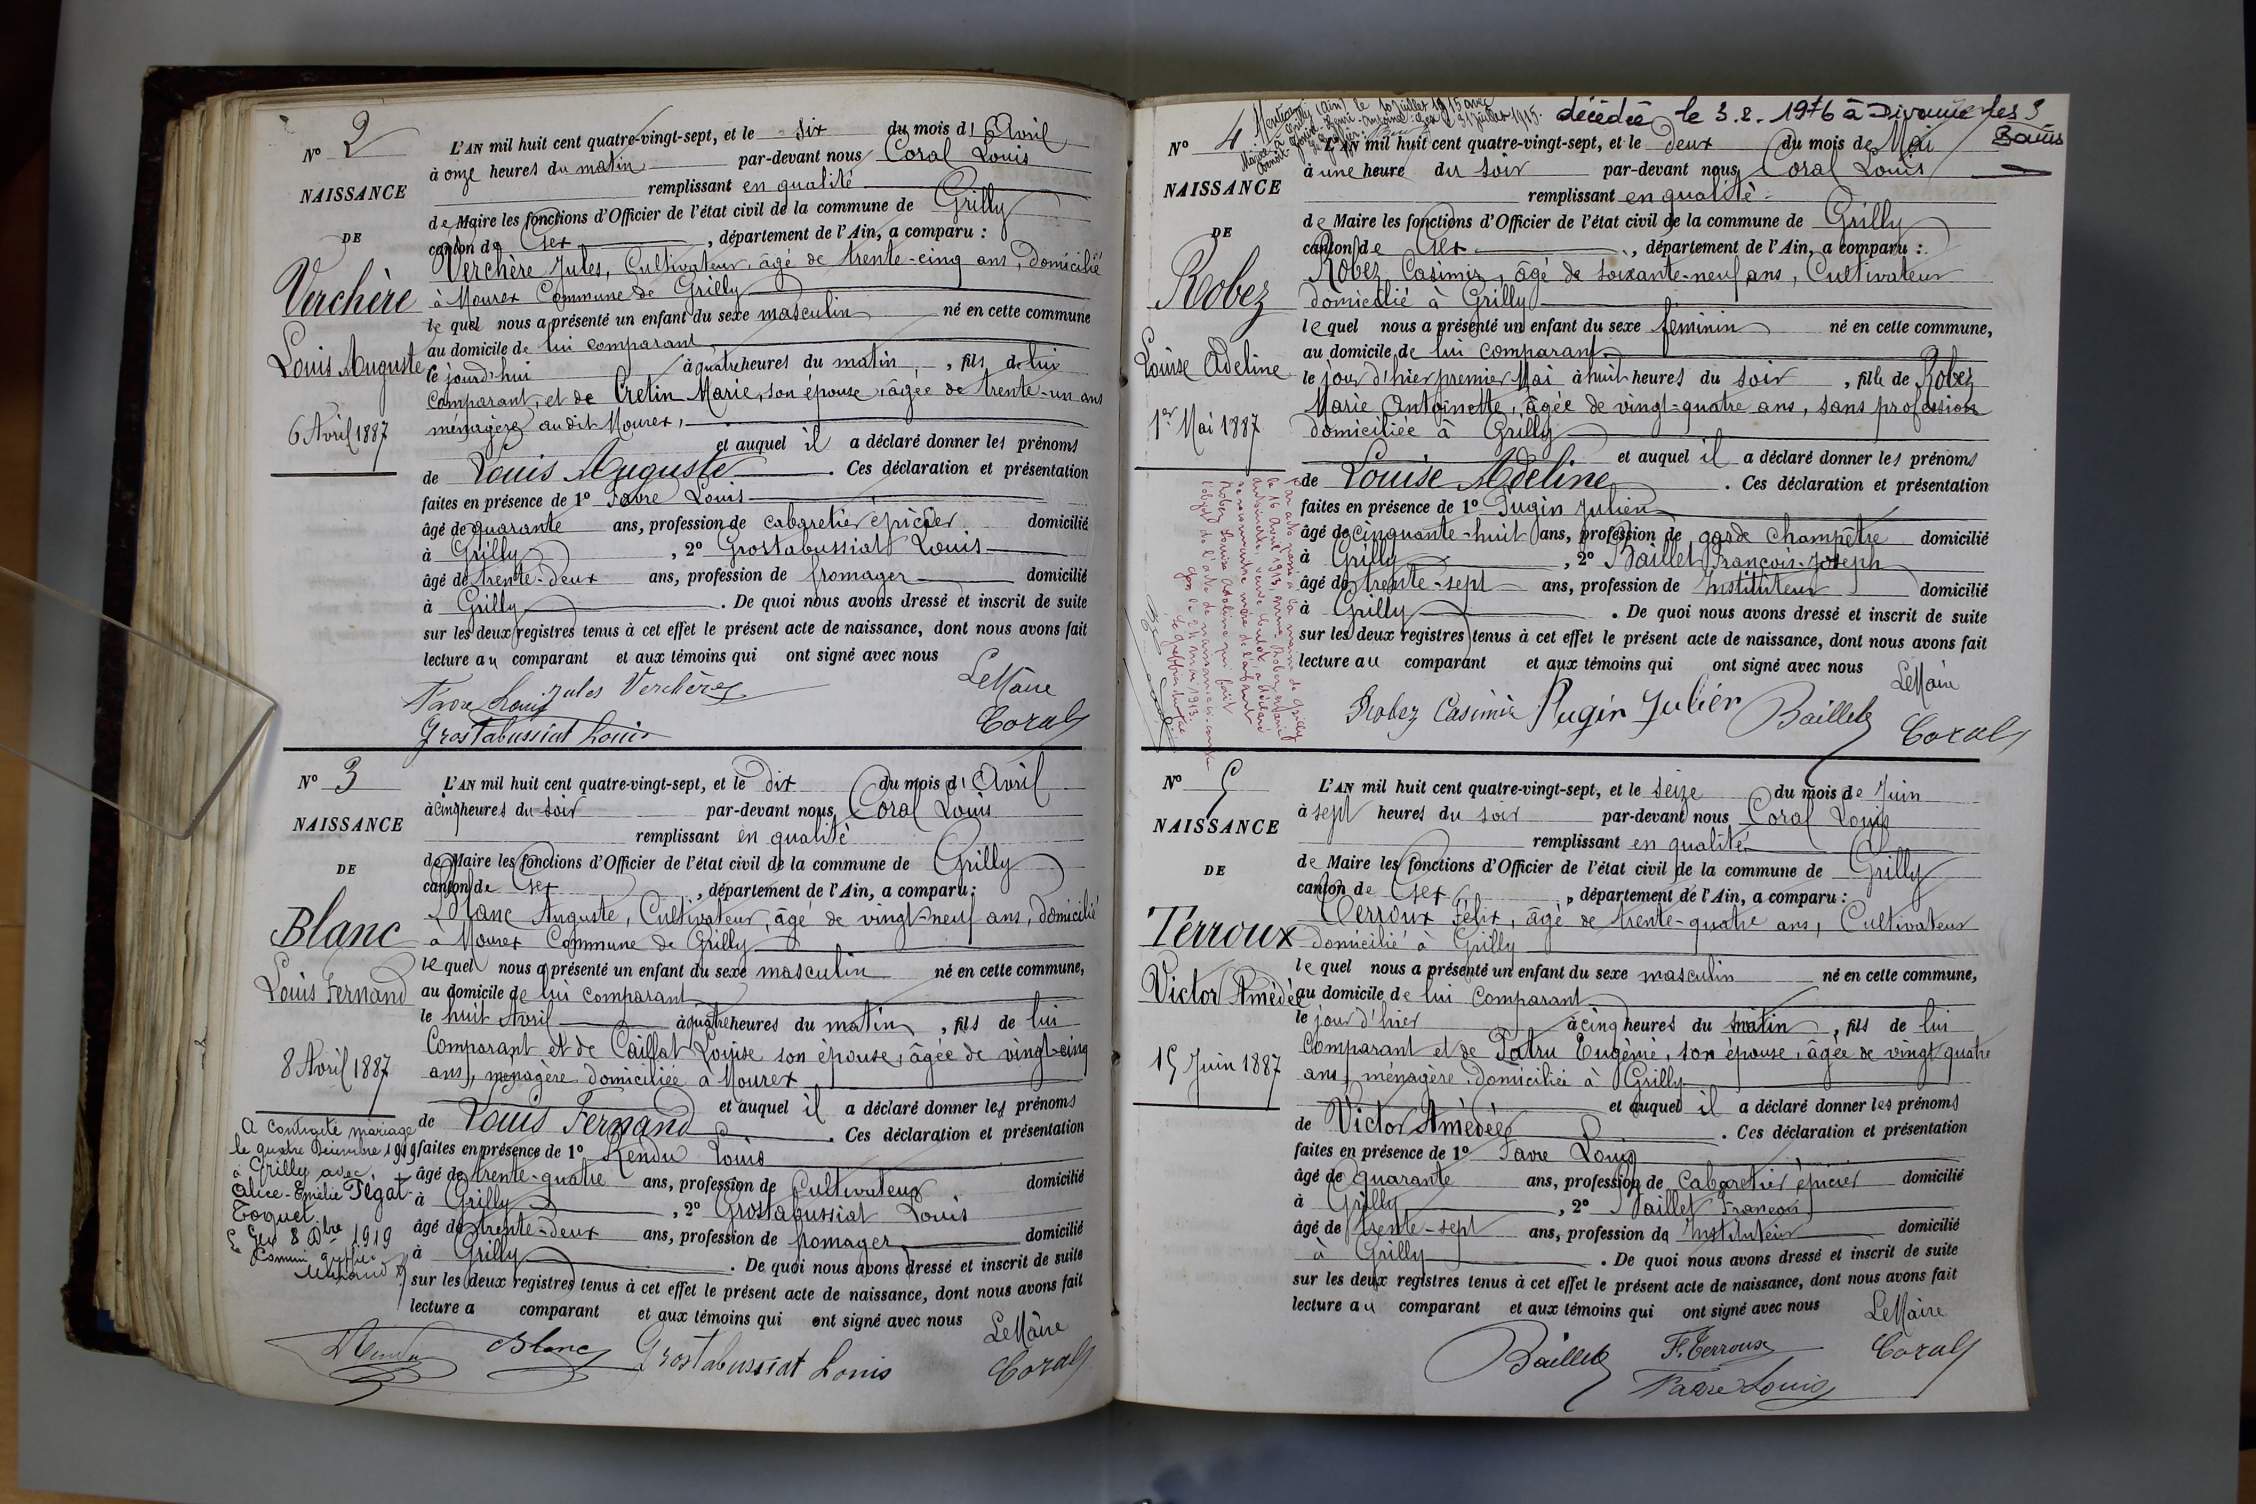 N° 2
NAISSANCE
DE
Verchère
Louis Auguste
6 Avril 1887
L'AN mil huit cent quatre-vingt-sept, et le six du mois d'Avril
à onze heures du matin par-devant nous Coral Louis
remplissant en qualité
de Maire les fonctions d'Officier de l'état civil de la commune de Grilly
canton de Gex, département de l'Ain, a comparu :
Verchère Jules, Cultivateur, âgé de trente-cinq ans, domicilié
à Mourex Commune de Grilly
lequel nous a présenté un enfant du sexe masculin né en cette commune
au domicile de lui comparant
le jourd'hui à quatre heures du matin, fils de lui
comparant, et de Cretin Marie, son épouse, âgée de trente-un ans
ménagère audit Mourex,
et auquel il a déclaré donner les prénoms
de Louis Auguste. Ces déclaration et présentation
faites en présence de 1° Favre Louis
âgé de quarante ans, profession de cabaretier épicier domicilié
à Grilly, 2° Grostabussiat Louis
âgé de trente-deux ans, profession de fromager domicilié
à Grilly. De quoi nous avons dressé et inscrit de suite
sur les deux registres tenus à cet effet le présent acte de naissance, dont nous avons fait
lecture au comparant et aux témoins qui ont signé avec nous
Le Maire
Favre Louis Jules Verchère
Grostabussiat Louis Coral
N° 3
NAISSANCE
DE
Blanc
Louis Fernand
8 Avril 1887
A contracté mariage
le quatre Décembre 1919
à Grilly avec
Alice-Emélie Pégat-
Toquet
Gex 8 Dbre 1919
L'AN mil huit cent quatre-vingt-sept, et le dix du mois d'Avril
à cinq heures du soir par-devant nous Coral Louis
remplissant en qualité
de Maire les fonctions d'Officier de l'état civil de la commune de Grilly
canton de Gex, département de l'Ain, a comparu :
Blanc Auguste, Cultivateur, âgé de vingt-neuf ans, domicilié
à Mourex Commune de Grilly
lequel nous a présenté un enfant du sexe masculin né en cette commune,
au domicile de lui comparant
le huit Avril à quatre heures du matin, fils de lui
Comparant et de Caillat Louise son épouse, âgée de vingt-cinq
ans, ménagère domiciliée à Mourex
et auquel il a déclaré donner les prénoms
de Louis Fernand. Ces déclaration et présentation
faites en présence de 1° Rendu Louis
âgé de trente-quatre ans, profession de Cultivateur domicilié
à Grilly, 2° Grostabussiat Louis
âgé de trente-deux ans, profession de fromager domicilié
à Grilly. De quoi nous avons dressé et inscrit de suite
sur les deux registres tenus à cet effet le présent acte de naissance, dont nous avons fait
lecture a comparant et aux témoins qui ont signé avec nous
Le Maire
Rendu Blanc Grostabussiat Louis Coral
décédée le 3.2.1976 à Divonne les
Bains
N° 4
NAISSANCE
DE
Robez
Louise Adeline
1er Mai 1887
L'AN mil huit cent quatre-vingt-sept, et le deux du mois de Mai
à une heure du soir par-devant nous Coral Louis
remplissant en qualité
de Maire les fonctions d'Officier de l'état civil de la commune de Grilly
canton de Gex, département de l'Ain, a comparu :
Robez Casimir, âgé de soixante-neuf ans, Cultivateur
domicilié à Grilly
lequel nous a présenté un enfant du sexe feminin né en cette commune,
au domicile de lui comparant
le jour d'hier premier Mai à huit heures du soir, fille de Robez
Marie Antoinette, âgée de vingt-quatre ans, sans profession
domiciliée à Grilly
et auquel il a déclaré donner les prénoms
de Louise Adeline. Ces déclaration et présentation
faites en présence de 1° Pugin Julien
âgé de cinquante-huit ans, profession de garde champêtre domicilié
à Grilly, 2° Baillet François-Joseph
âgé de trente-sept ans, profession de Instituteur domicilié
à Grilly. De quoi nous avons dressé et inscrit de suite
sur les deux registres tenus à cet effet le présent acte de naissance, dont nous avons fait
lecture au comparant et aux témoins qui ont signé avec nous
Le Maire
Robez Casimir Pugin Julien Baillet Coral
N° 5
NAISSANCE
DE
Terroux
Victor Amédée
15 Juin 1887
L'AN mil huit cent quatre-vingt-sept, et le seize du mois de Juin
à sept heures du soir par-devant nous Coral Louis
remplissant en qualité
de Maire les fonctions d'Officier de l'état civil de la commune de Grilly
canton de Gex, département de l'Ain, a comparu :
Terroux Félix, âgé de trente-quatre ans, Cultivateur
domicilié à Grilly
lequel nous a présenté un enfant du sexe masculin né en cette commune,
au domicile de lui Comparant
le jour d'hier à cinq heures du matin, fils de lui
comparant et de Patru Eugénie, son épouse, âgée de vingt quatre
ans, ménagère, domiciliée à Grilly
et auquel il a déclaré donner les prénoms
de Victor Amédée. Ces déclaration et présentation
faites en présence de 1° Favre Louis
âgé de quarante ans, profession de Cabaretier épicier domicilié
à Grilly, 2° Baillet François
âgé de trente-sept ans, profession de Instituteur domicilié
à Grilly. De quoi nous avons dressé et inscrit de suite
sur les deux registres tenus à cet effet le présent acte de naissance, dont nous avons fait
lecture au comparant et aux témoins qui ont signé avec nous
Le Maire
Baillet F. Terroux Coral
Favre Louis